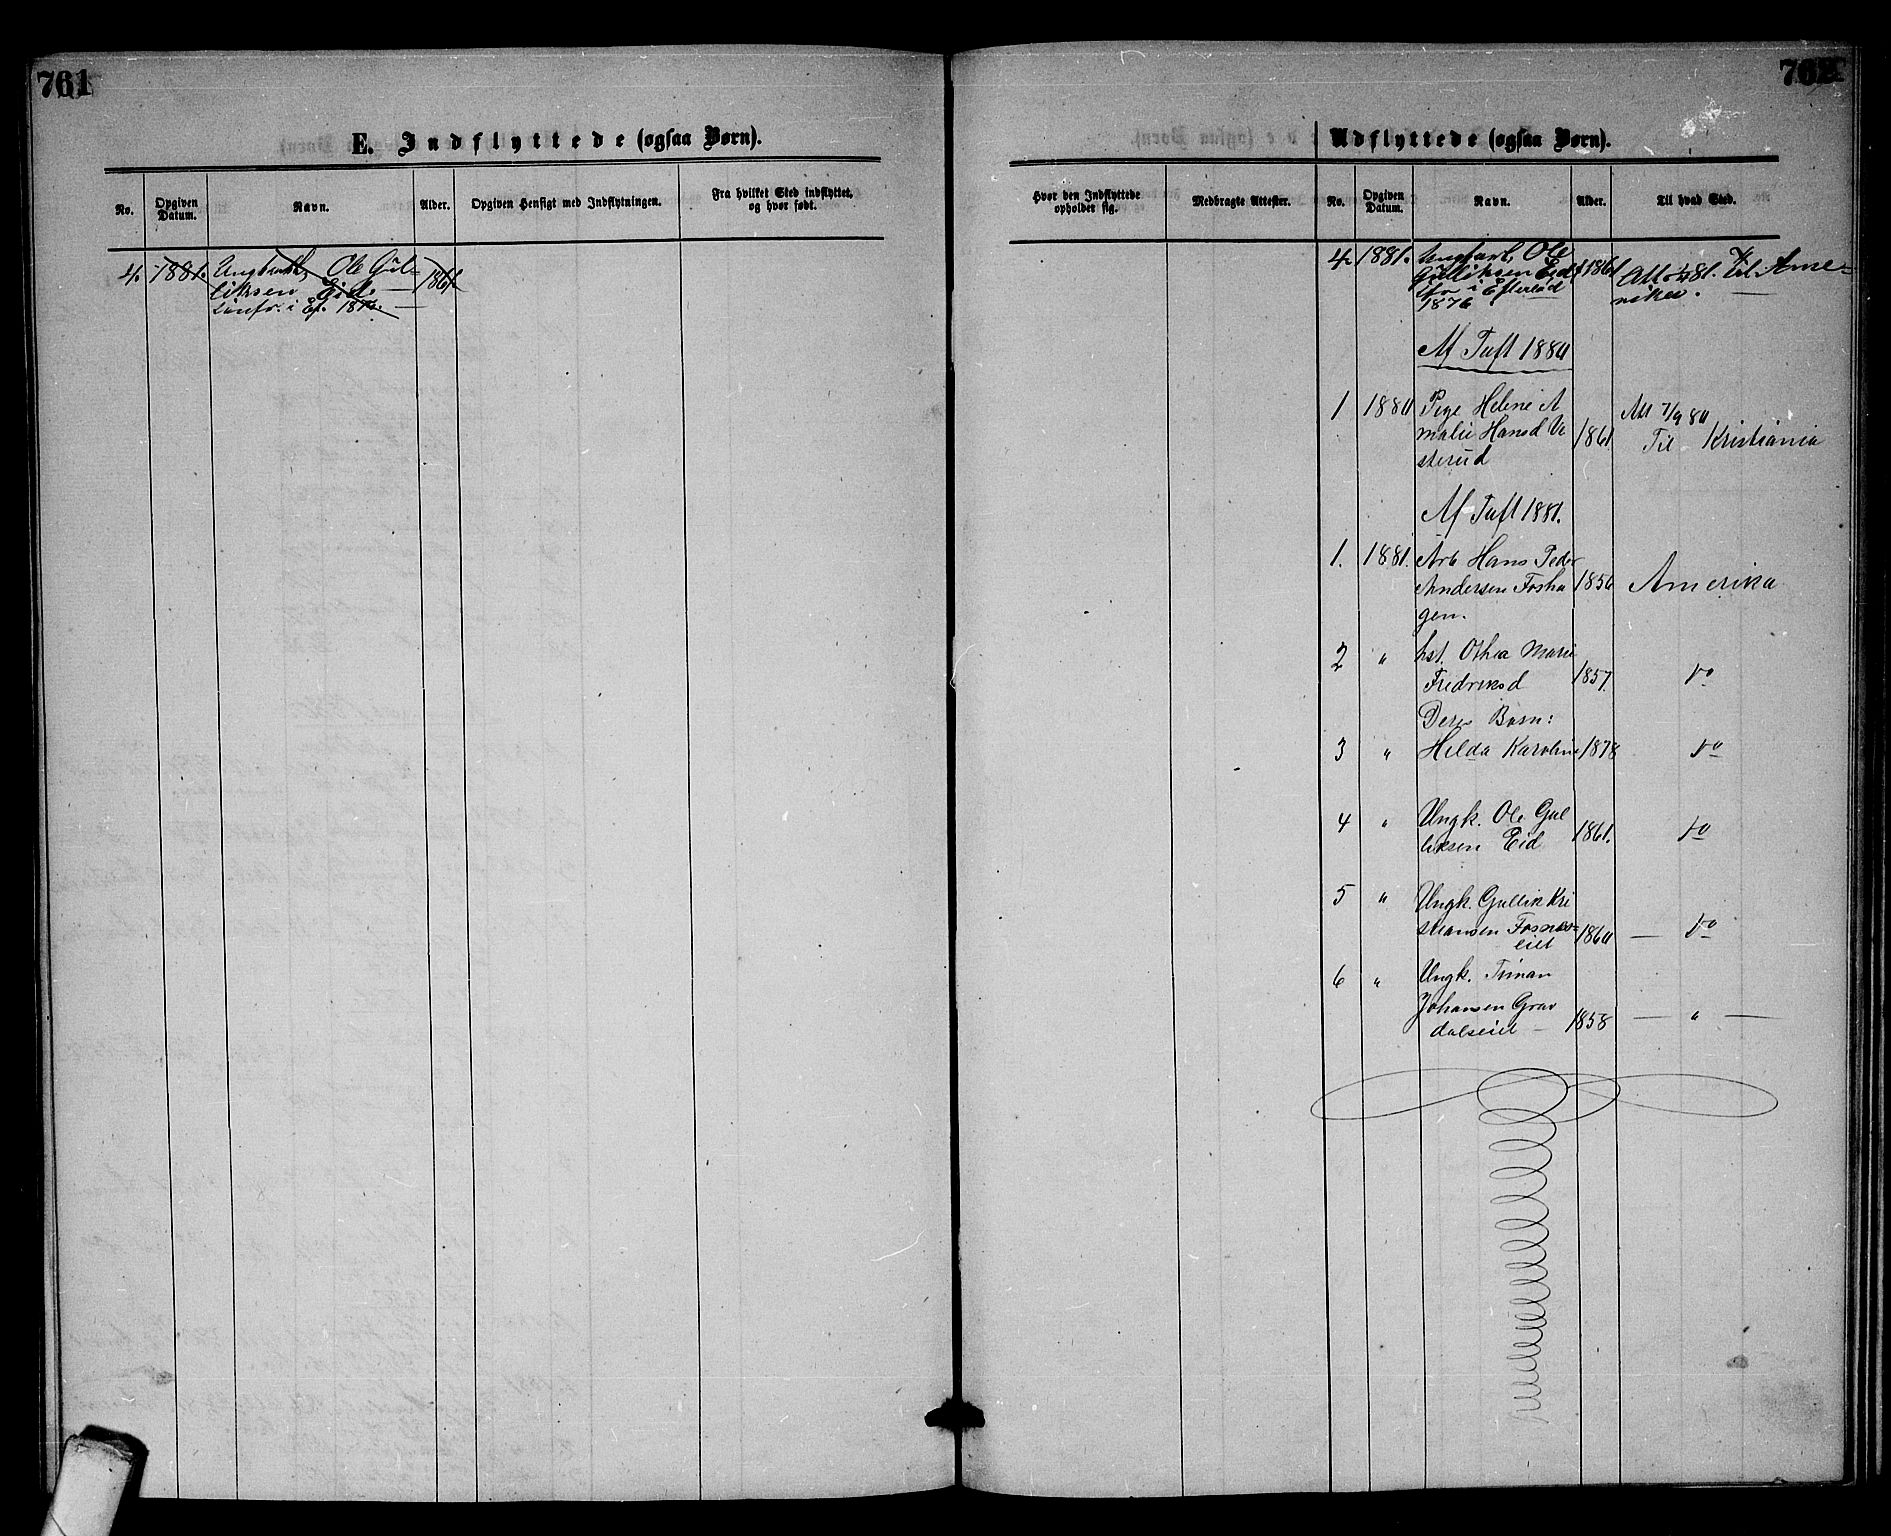 761
E. Indflyttede (ogsaa Børn).
No.
Opgiven
Datum.
Navn.
Alder.
Opgiven Hensigt med Indflytningen.
Fra hvilket Sted indflyttet,
og hvor født.
4. 1881. Ungkarl, Ole Gul- 1861.
liksen Eid.
1876.
762
Udflyttede (ogsaa Børn).
Hvor den Indflyttede
opholder sig.
Medbragte Attester.
No.
Opgiven
Datum.
Navn.
Alder.
Til hvad Sted.
4. 1881. Ungkarl, Ole
Gulliksen Eid, 1861 Att 81. Til Ame-
i Eftelød rika.
1876
Af Tuft 1880
1 1880 Pige Helene A Att 7/9 80
malie Hansd Ve 1861 Til Kristiania
sterud
Af Tuft 1881.
1. 1881. Arb Hans Peder
Andersen Fosha 1856 Amerika
gen.
2 " hst. Othea Marie
Fredriksd 1857. do
Deres Barn:
3 " Hilda Karoline 1878 do
4 " Ungk. Ole Gul
liksen Eid 1861. do
5 " Ungk. Gullik Kri
stiansen Fosnæs= 1860 — do
eiet
6 " Ungk. Timan
Johansen Grav
dalseiet — 1858 — " —